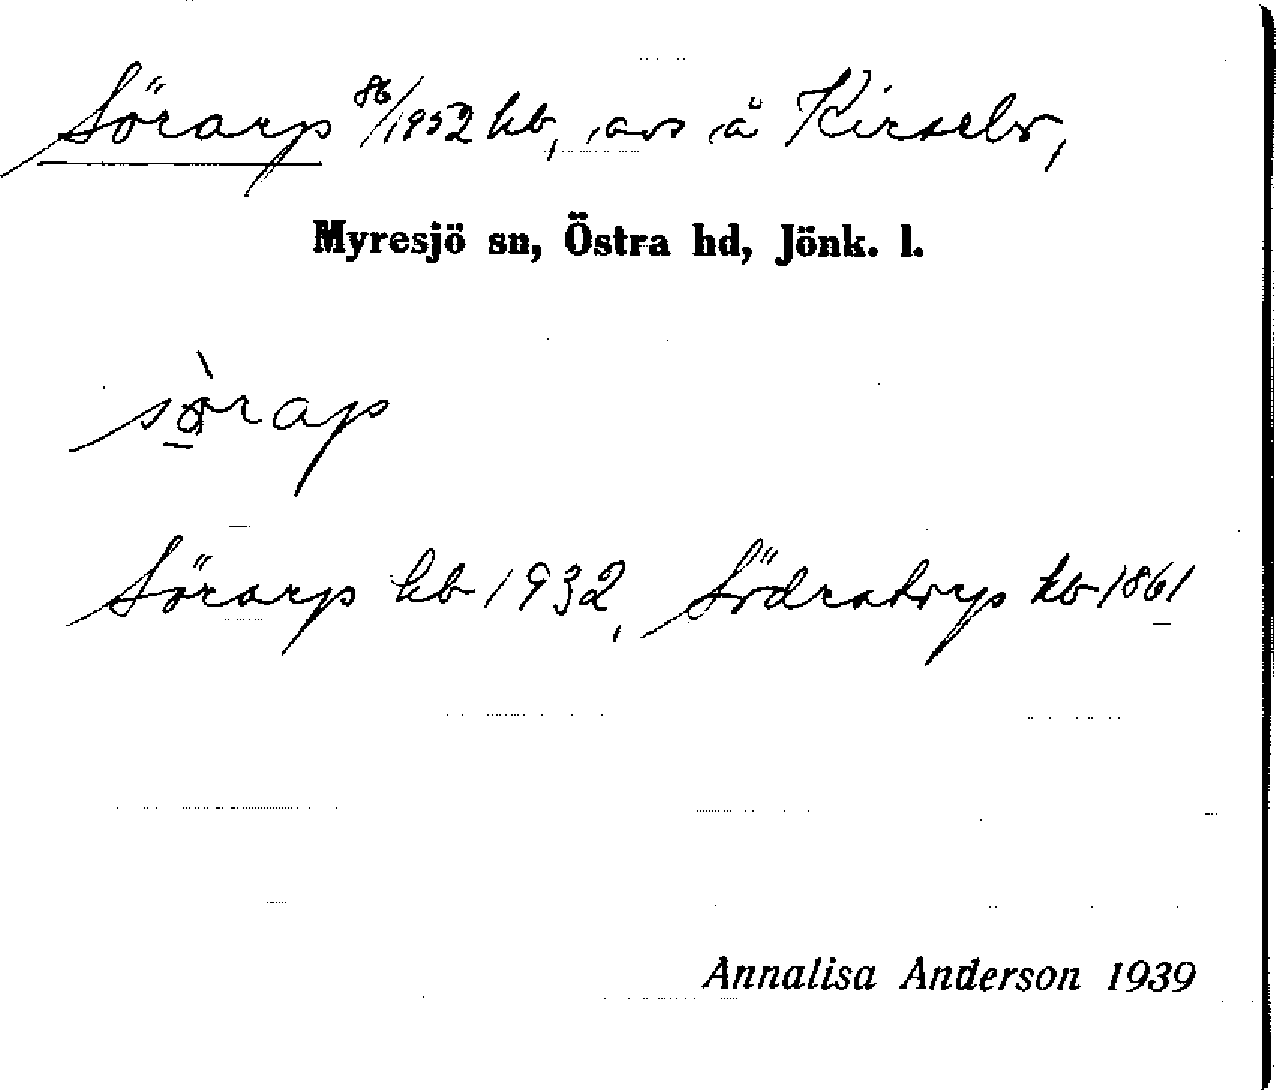 Sörarp 86/1952 hb, avs å Kirseby,
Myresjö sn, Östra hd, Jönk. l.
sörap
Sörarp hb 1932, Södratorp hb 1861
Annalisa Anderson 1939